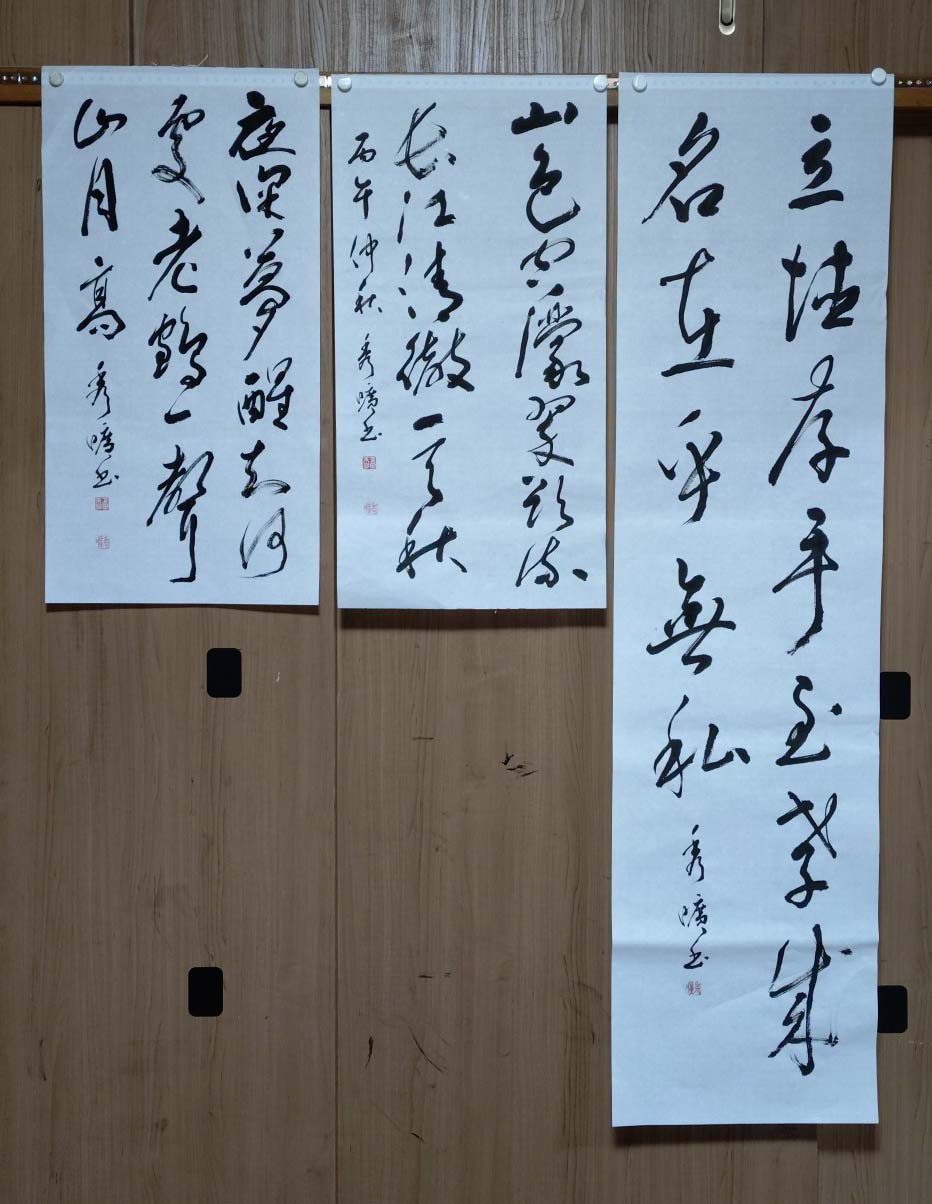 立德存乎至孝成
名在乎無私
秀曠書
山色空濛翠欲流
長江清徹一天秋
丙午仲秋 秀曠書
夜深夢醒知何
處老鶴一聲
山月高
秀曠書